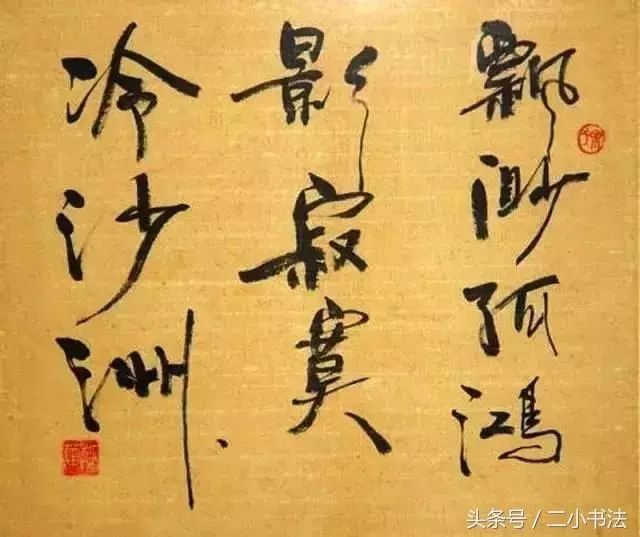 飘渺孤鸿
影寂寞
冷沙洲
头条号/二小书法